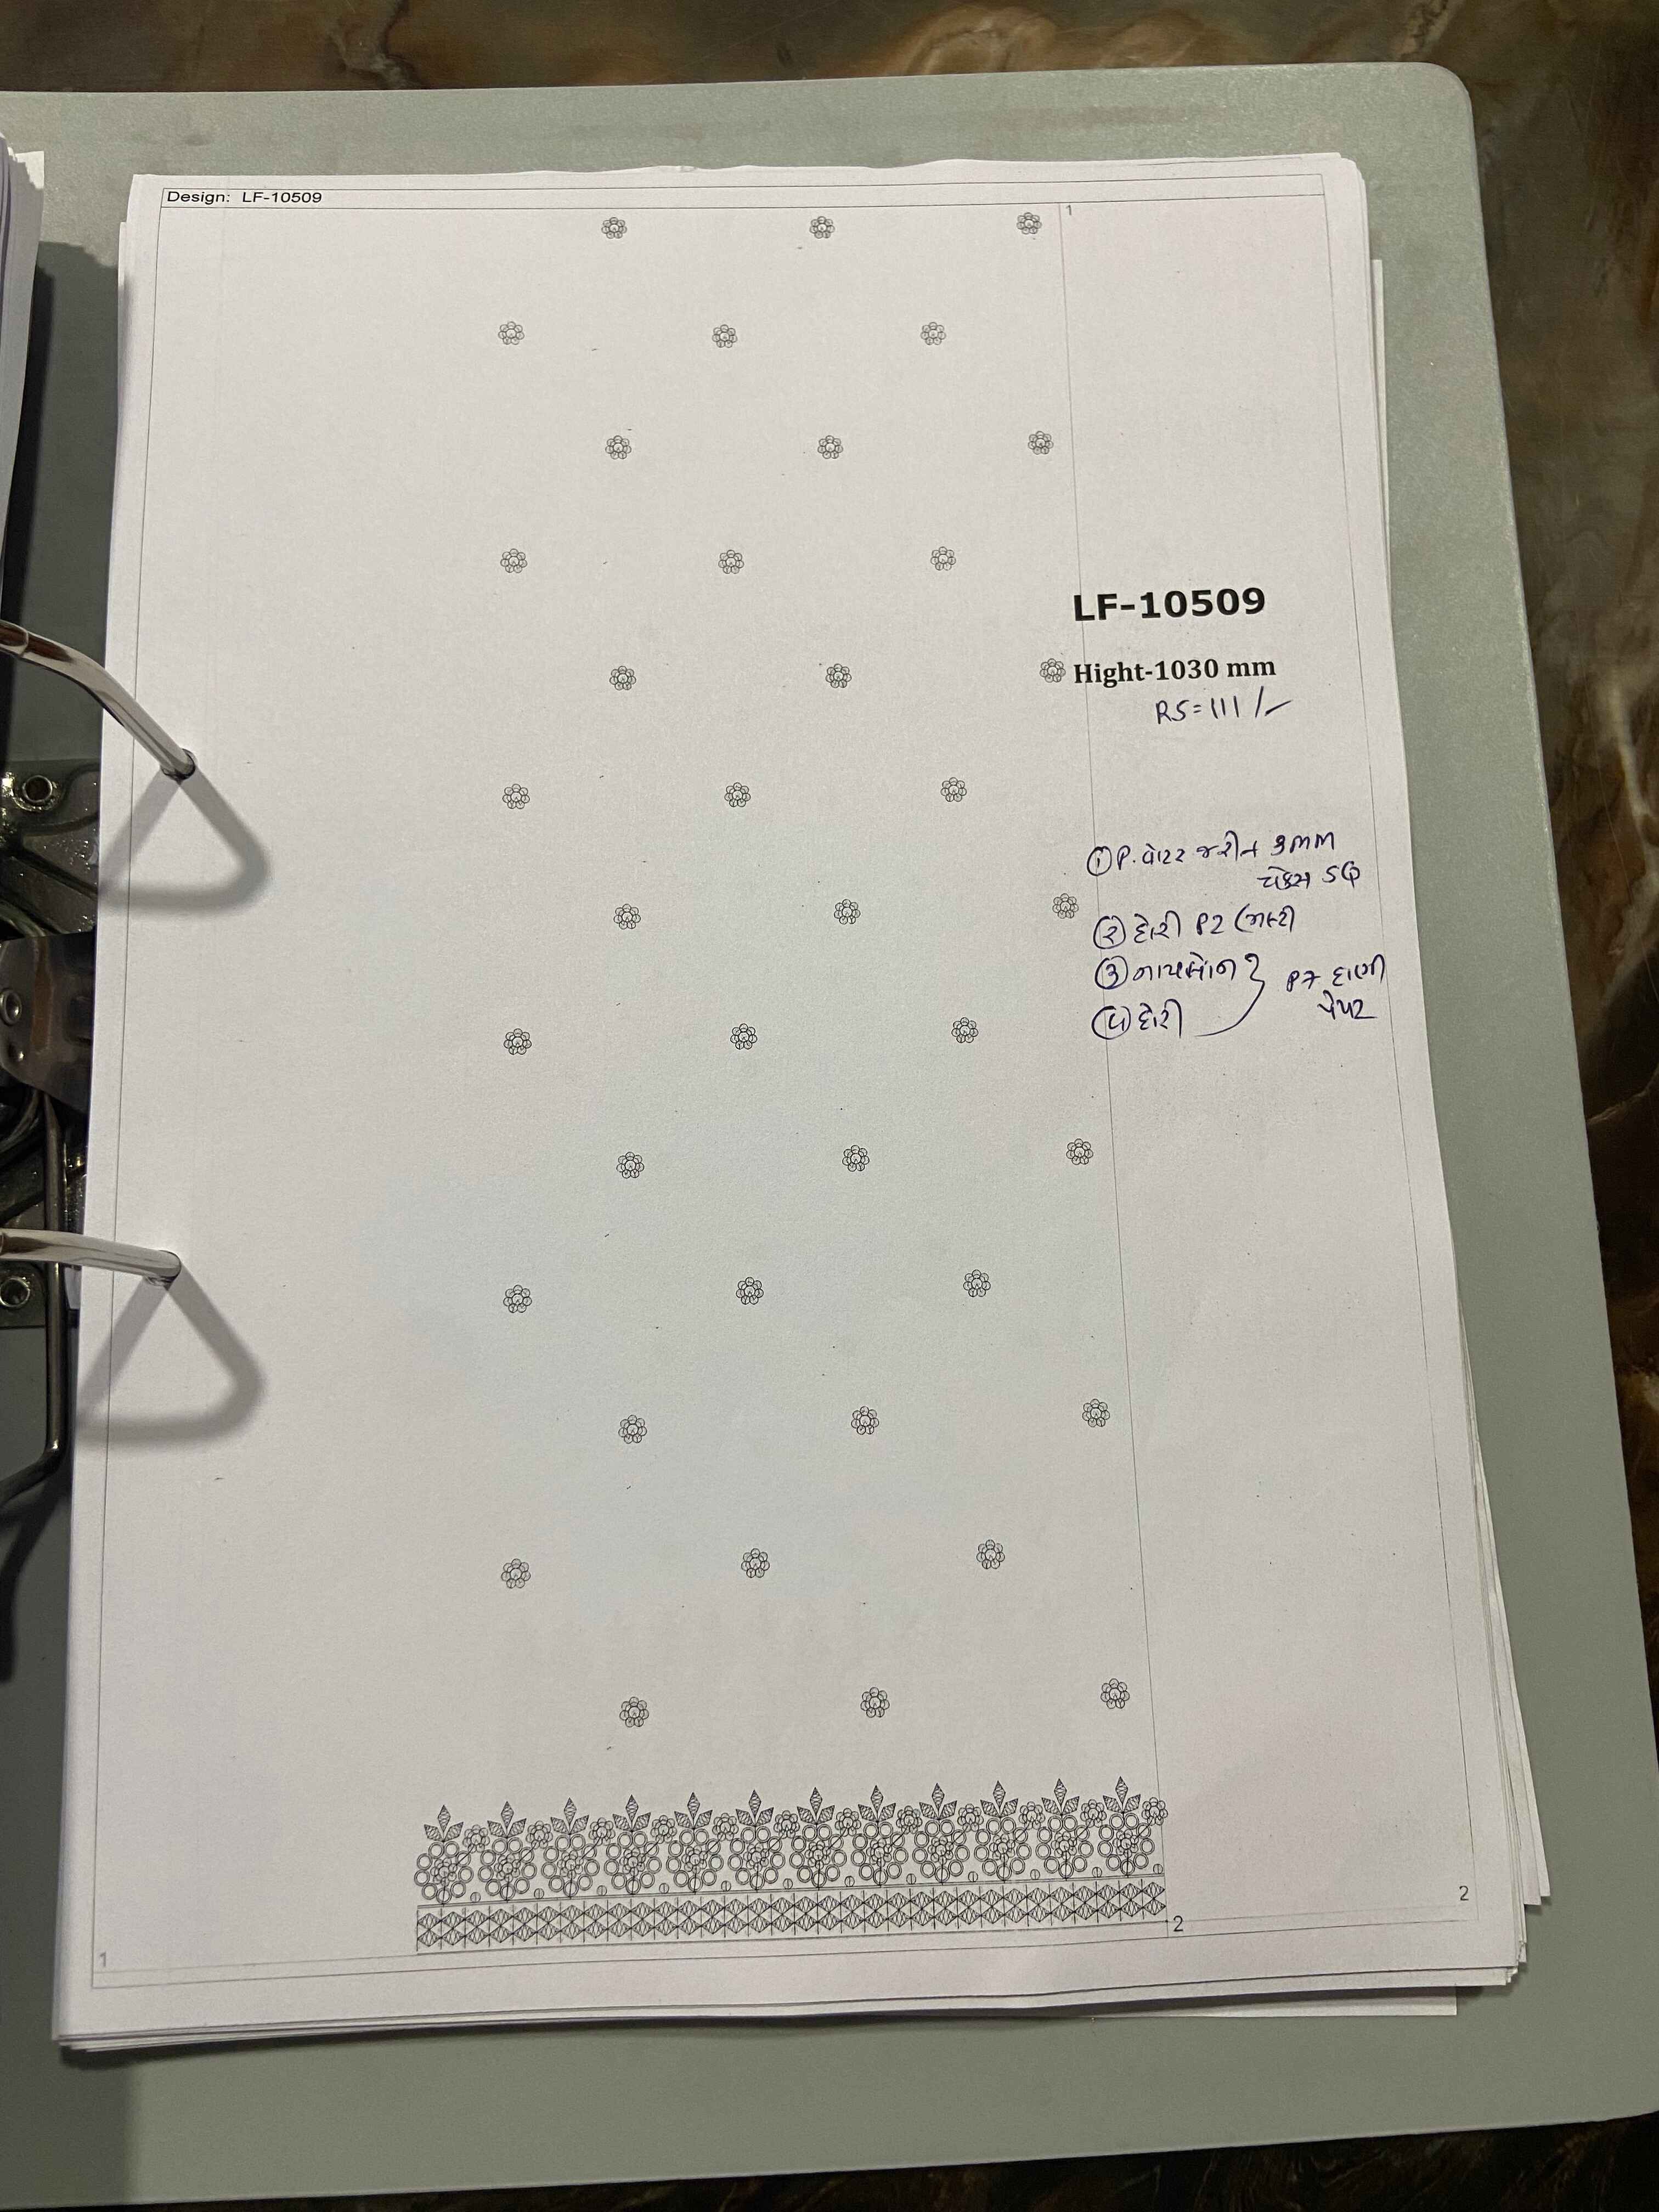 Design: LF-10509
1
LF-10509
Hight-1030 mm
RS=111/-
① P. વોટર જરીન 3mm
SQ
② દોરી P2
③ નાયલોન
④ દોરી
2
2
1